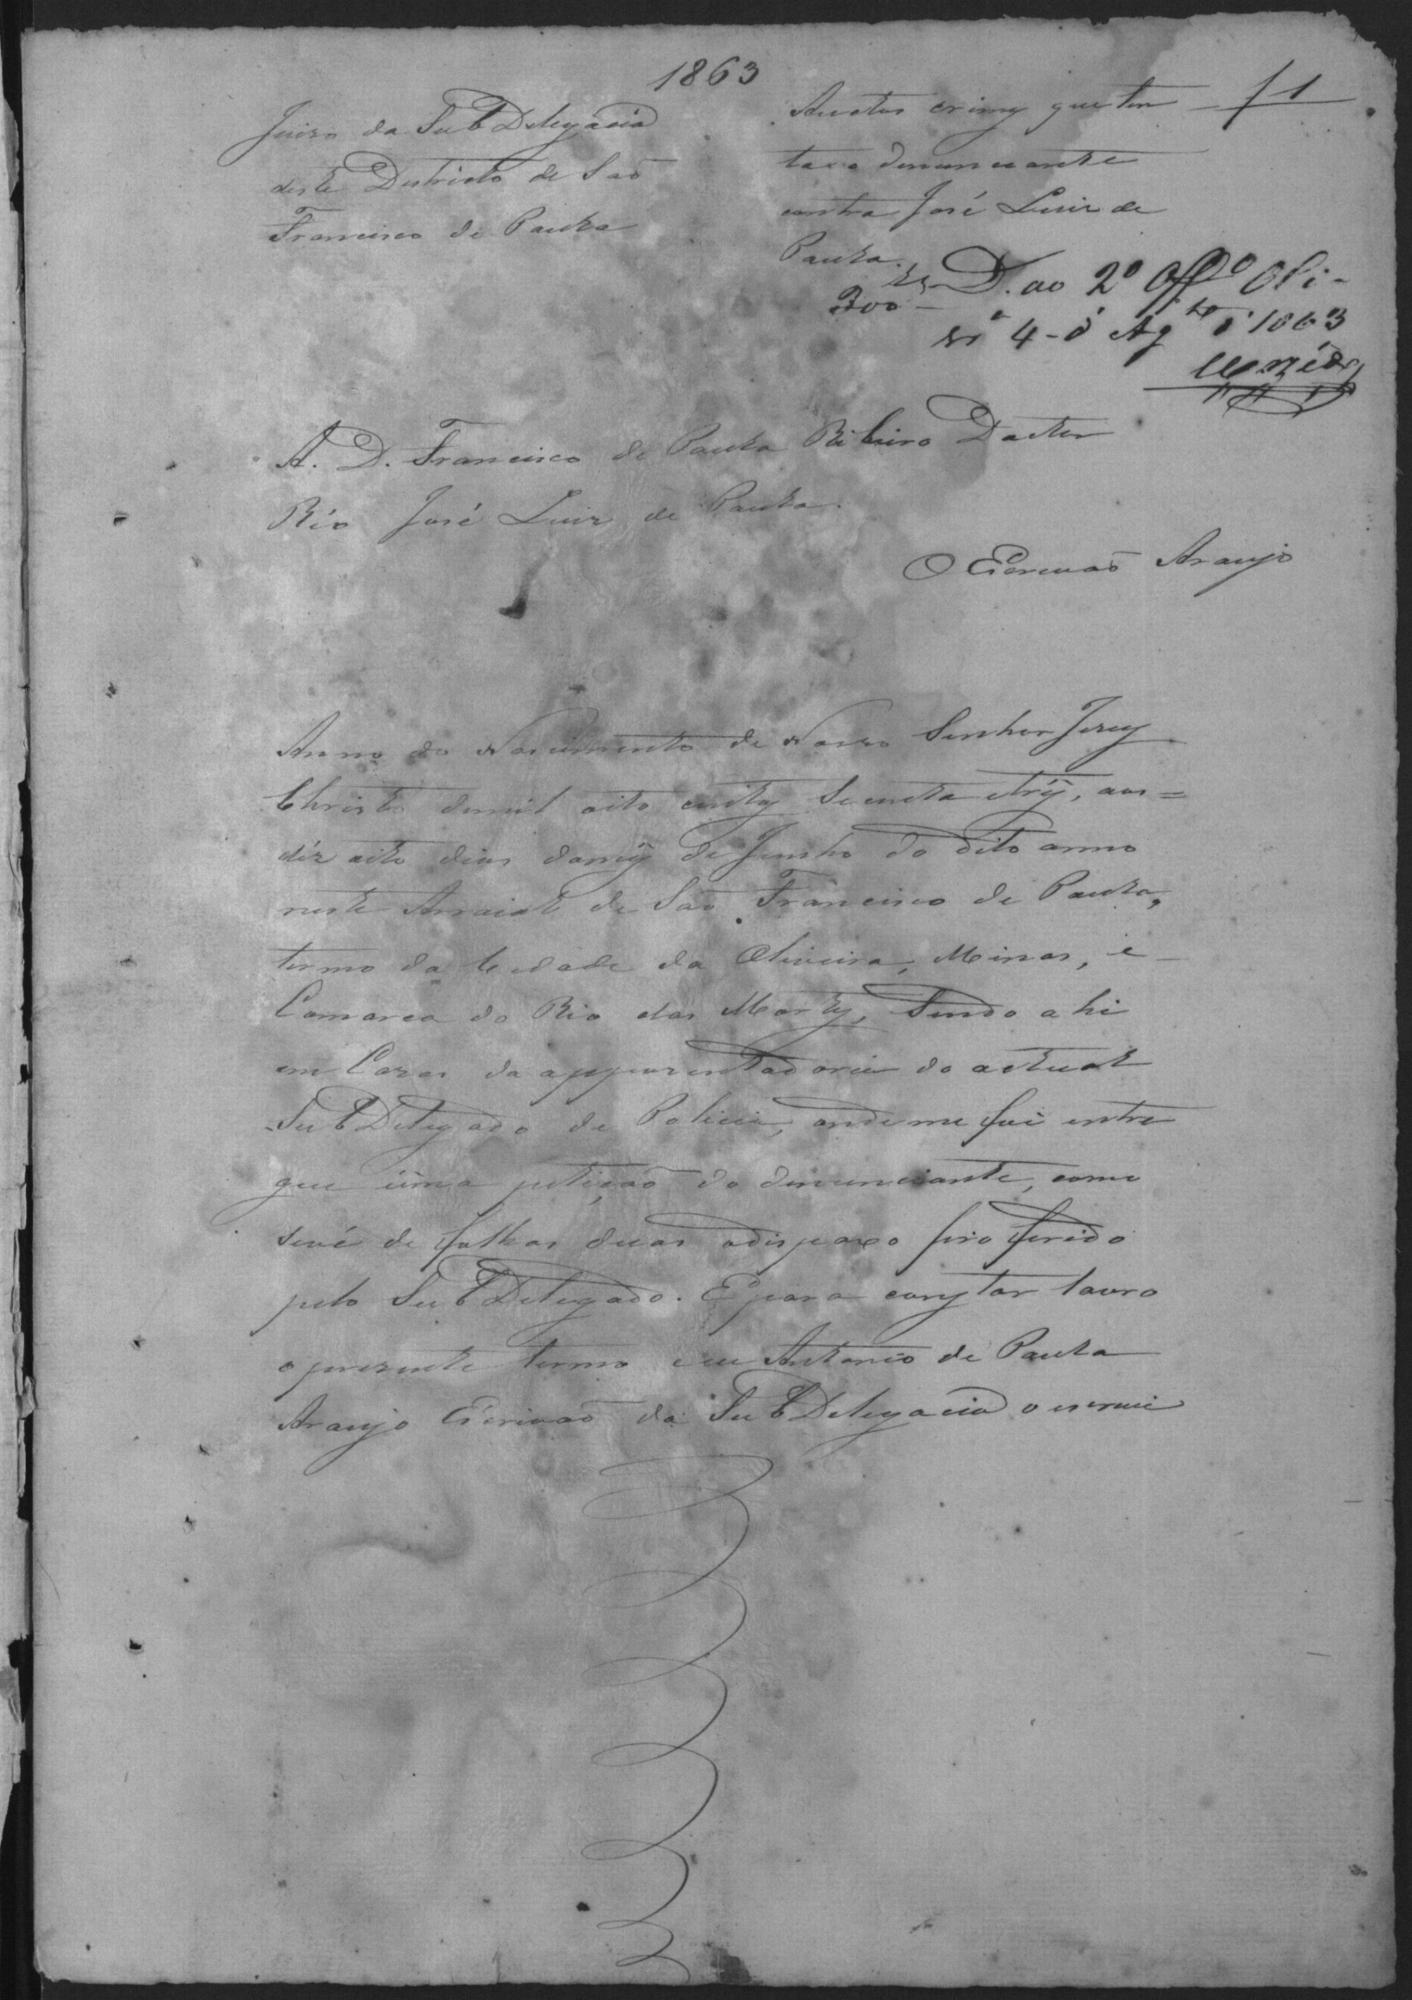 1863
f 1
Juizo da SubDelegacia
deste Districto de Saõ
Francisco de Paula
Auctos crimy que ten
ta o denunciante
contra José Luiz de
Paula.
300
D. ao 2º Offº Oli-
4 Agto 1863
A. D. Francisco de Paula Ribeiro Doctor
Réo José Luiz de Paula.
O Escrivaõ Araujo
Anno do Nascimento de Nosso Senhor Jesuy
Christo demil oito centos Secenta etrÿ, aos=
déz oito dias domÿ de Junho do dito anno
neste Arraial de Saõ Francisco de Paula,
termo da Cidade da Oliveira, Minas, e
Comarca do Rio das Mortes, Sendo ahi
em Casas da appozentadoria do actual
SubDelegado de Policia, onde me foi entre
gue uma petiçaõ do denunciante, como
sevé de folhas duas odispaxo proferido
pelo SubDelegado. Epara conytar lavro
opresente termo eeu Antonio de Paula
Araujo Escrivaõ da SubDelegacia o escrevi